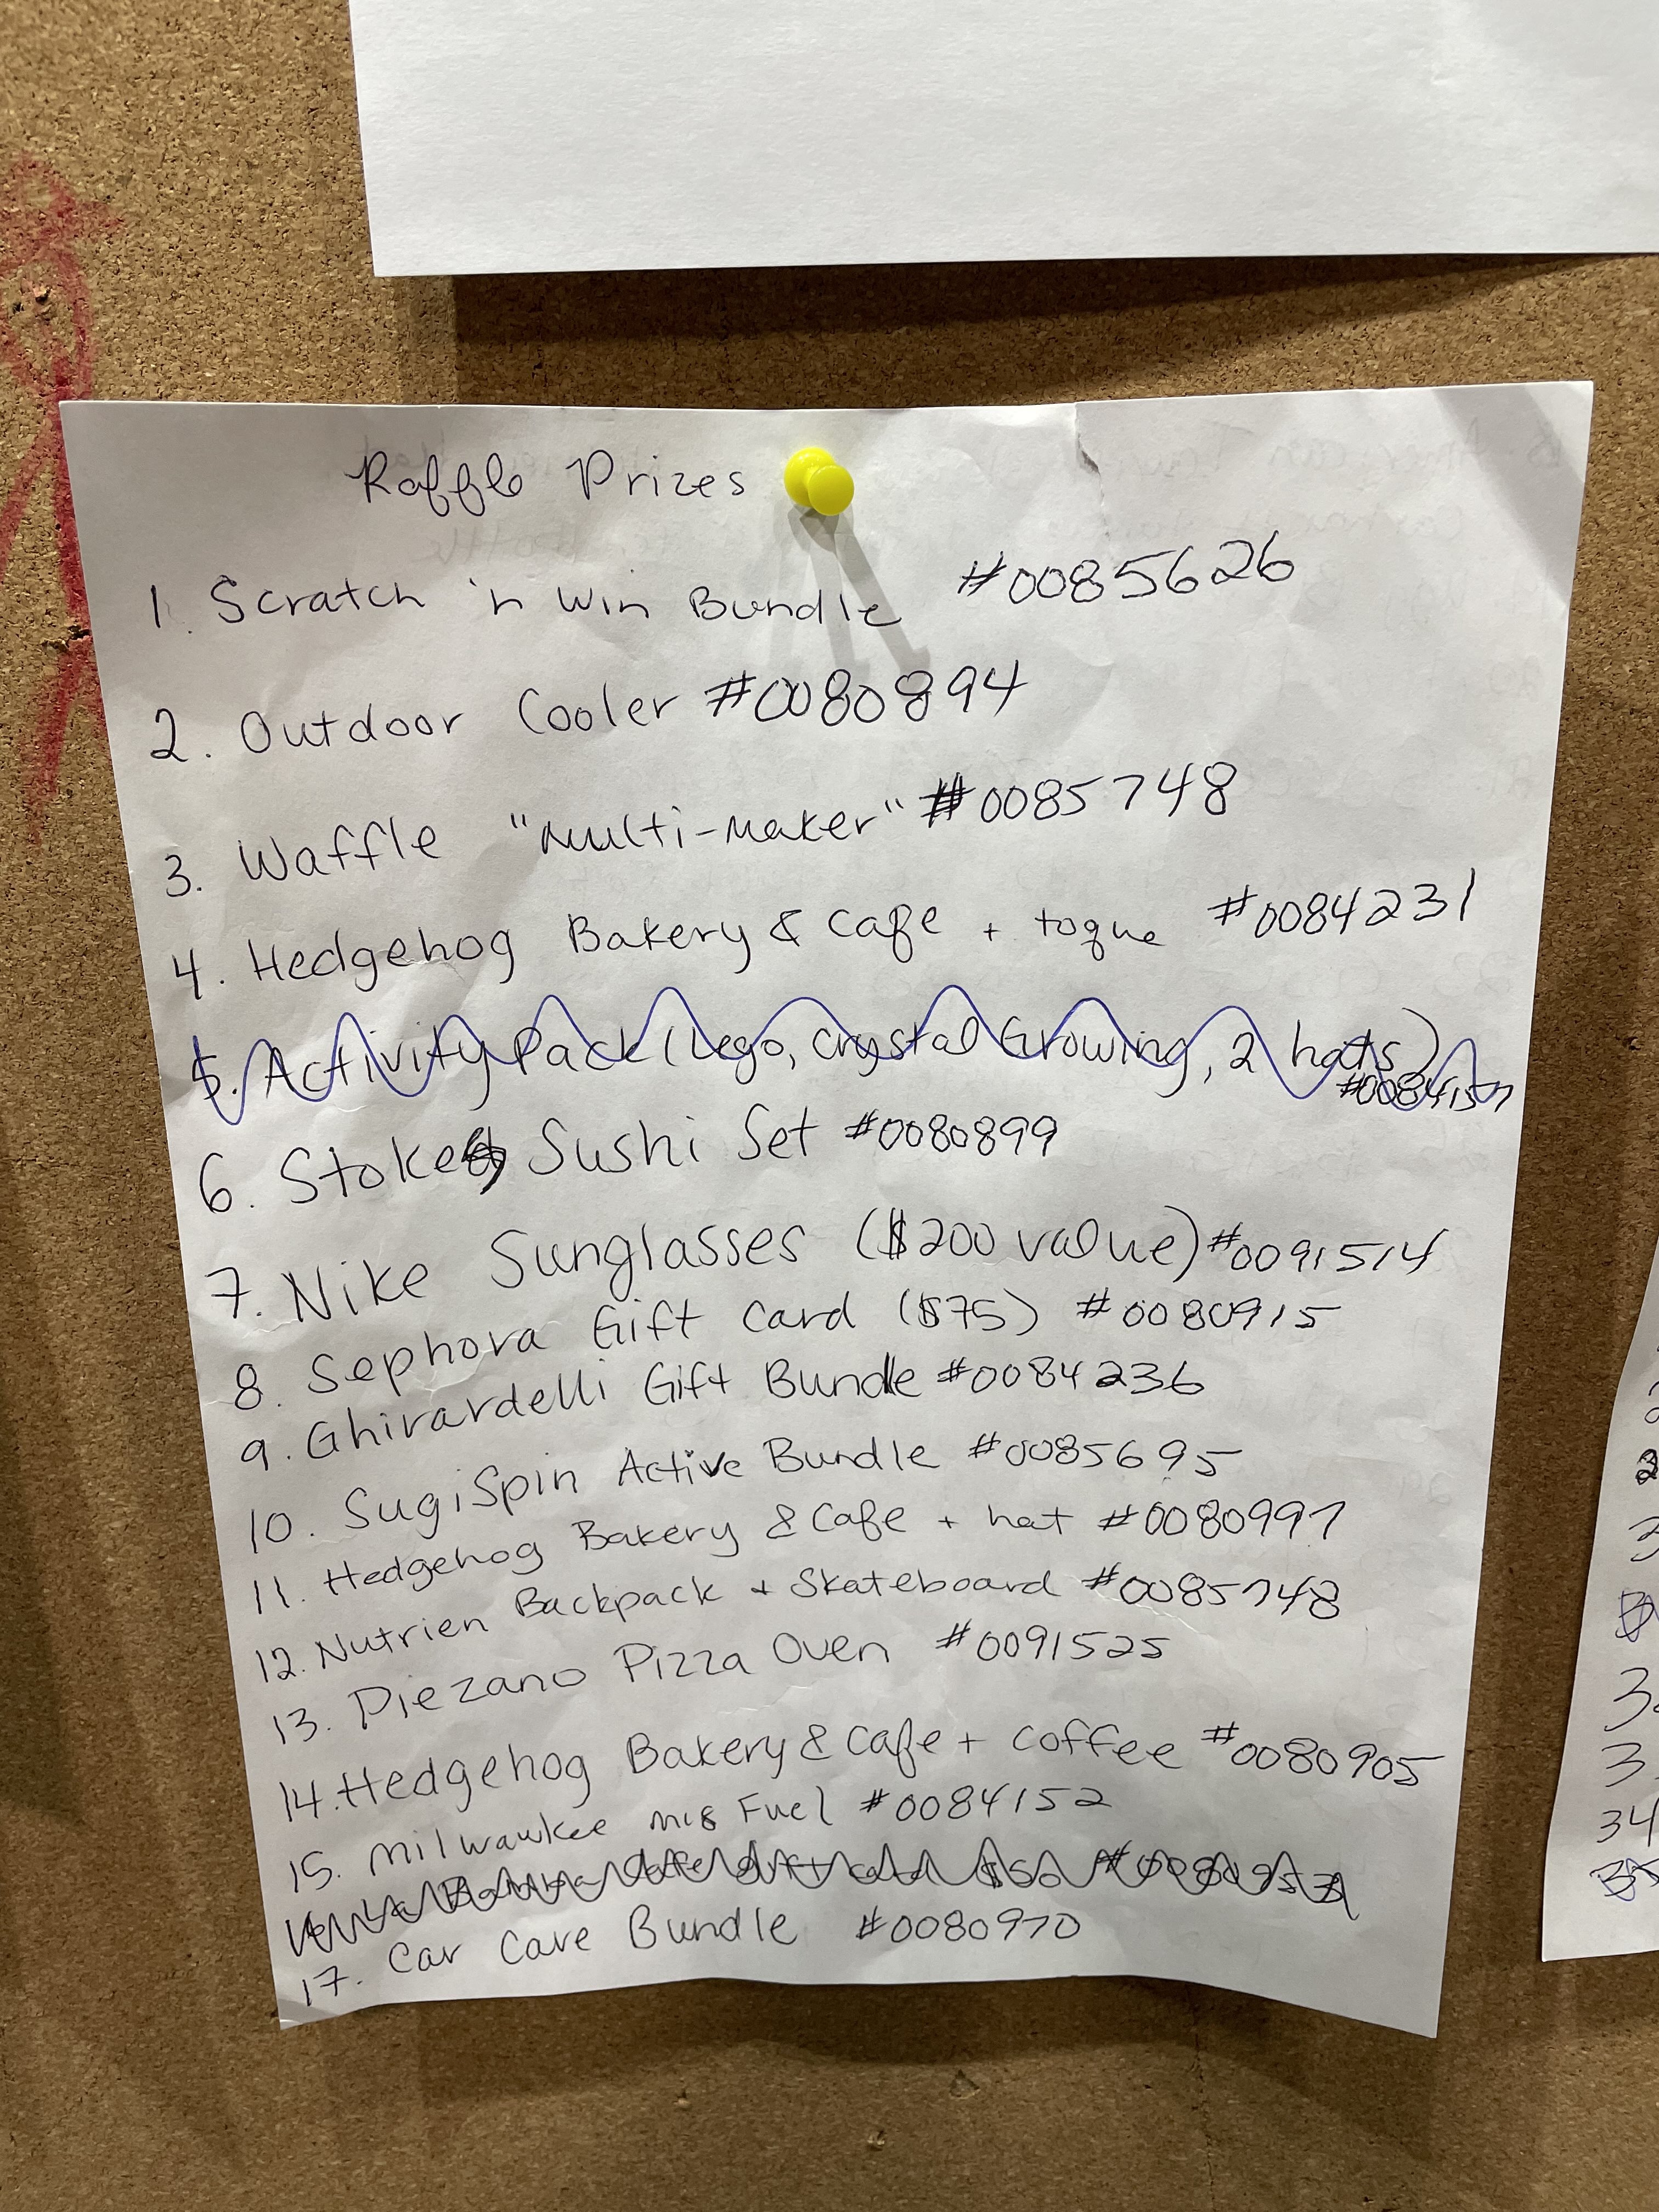 Raffle Prizes
1. Scratch 'n Win Bundle #0085626
2. Outdoor Cooler #0080894
3. Waffle "Multi-Maker" #0085748
4. Hedgehog Bakery & Cafe + toque #0084231
5. Activity Pack (Lego, Crystal Growing, 2 hats)
#0084157
6. Stokes Sushi Set #0080899
7. Nike Sunglasses ($200 value) #0091514
8. Sephora Gift Card ($75) #0080915
9. Ghirardelli Gift Bundle #0084236
10. SugiSpin Active Bundle #0085695
11. Hedgehog Bakery & Cafe + hat #0080997
12. Nutrien Backpack + Skateboard #0085748
13. Piezano Pizza Oven #0091525
14. Hedgehog Bakery & Cafe + coffee #0080905
15. Milwaukee M18 Fuel #0084152
gift card $50
17. Car Care Bundle #0080970
34